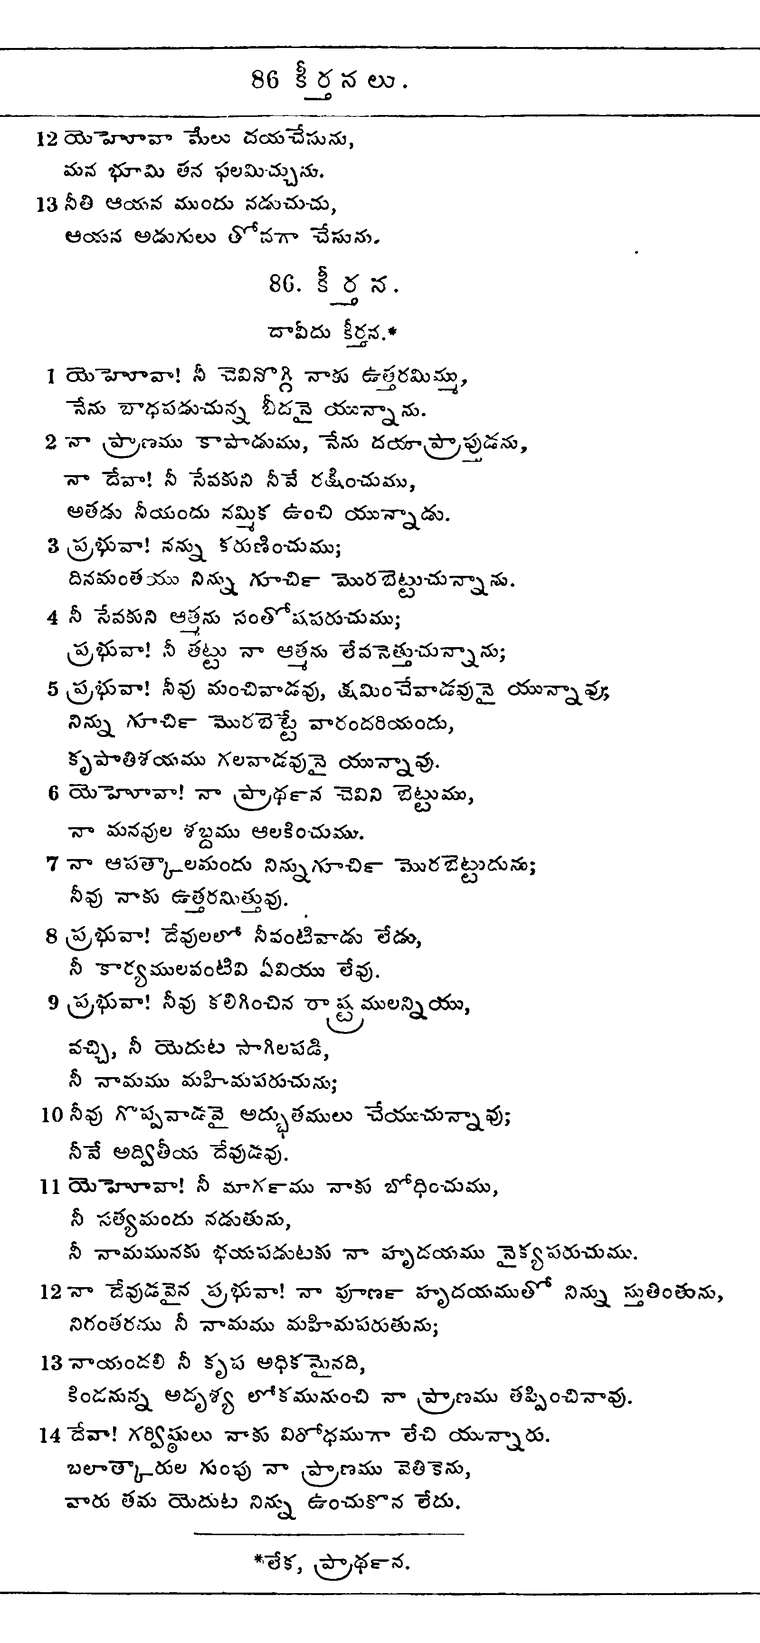 86 కీర్తనలు.
12 యెహోవా మేలు దయచేసును,
మన భూమి తన ఫలమిచ్చును.
13 నీతి ఆయన ముందు నడుచుచు,
ఆయన అడుగులు తోవగా చేసును.
86. కీర్తన.
దావీదు కీర్తన.*
1 యెహోవా! నీ చెవినొగ్గి నాకు ఉత్తరమిమ్ము,
నేను బాధపడుచున్న బీదనై యున్నాను.
2 నా ప్రాణము కాపాడుము, నేను దయాప్రాప్తుడను,
నా దేవా! నీ సేవకుని నీవే రక్షించుము,
అతడు నీయందు నమ్మిక ఉంచి యున్నాడు.
3 ప్రభువా! నన్ను కరుణించుము;
దినమంతయు నిన్ను గూచి౯ మొరబెట్టుచున్నాను.
4 నీ సేవకుని ఆత్మను సంతోషపరుచుము;
ప్రభువా! నీ తట్టు నా ఆత్మను లేవనెత్తుచున్నాను;
5 ప్రభువా! నీవు మంచివాడవు, క్షమించేవాడవునై యున్నావు;
నిన్ను గూచి౯ మొరబెట్టే వారందరియందు,
కృపాతిశయము గలవాడవునై యున్నావు.
6 యెహోవా! నా ప్రాథ౯న చెవిని బెట్టుము,
నా మనవుల శబ్దము ఆలకించుము.
7 నా ఆపత్కాలమందు నిన్నుగూచి౯ మొరబెట్టుదును;
నీవు నాకు ఉత్తరమిత్తువు.
8 ప్రభువా! దేవులలో నీవంటివాడు లేడు,
నీ కార్యములవంటివి ఏవియు లేవు.
9 ప్రభువా! నీవు కలిగించిన రాష్ట్రములన్నియు,
వచ్చి, నీ యెదుట సాగిలపడి,
నీ నామము మహిమపరుచును;
10 నీవు గొప్పవాడవై అద్భుతములు చేయుచున్నావు;
నీవే అద్వితీయ దేవుడవు.
11 యెహోవా! నీ మాగ౯ము నాకు బోధించుము,
నీ సత్యమందు నడుతును,
నీ నామమునకు భయపడుటకు నా హృదయము నైక్యపరుచుము.
12 నా దేవుడవైన ప్రభువా! నా పూణ౯ హృదయముతో నిన్ను స్తుతింతును,
నిరంతరము నీ నామము మహిమపరుతును;
13 నాయందలి నీ కృప అధికమైనది,
కిండనున్న అదృశ్య లోకమునుంచి నా ప్రాణము తప్పించినావు.
14 దేవా! గర్విష్ఠులు నాకు విరోధముగా లేచి యున్నారు.
బలాత్కారుల గుంపు నా ప్రాణము వెతికెను,
వారు తమ యెదుట నిన్ను ఉంచుకొన లేదు.
*లేక, ప్రాథ౯న.